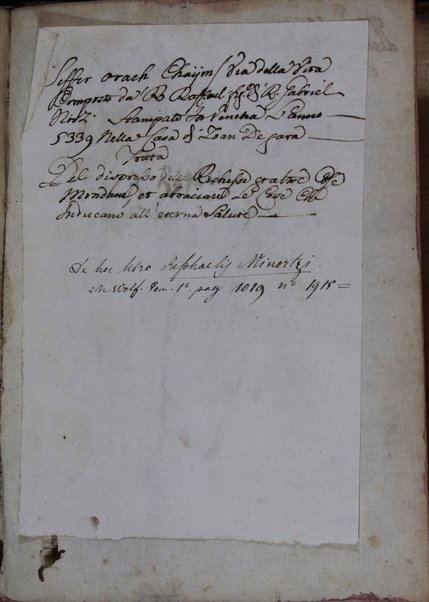 Seffer orach Chaijm / Via della Vita
Composto da R. Raffael fig.º di R. Gabriel
Norzi Stampato In Venetia L'anno
5339 Nella Casa di Zoan De gara
Trata
Del dispresso delle Richesse et altre Cose
Mondane, et abraciare Le Cose Che
Inducano all'eterna Salute
De hoc libro Rephaelis Minortzi
vide Wolf. Tom. 1º. pag 1019 nº 1918 =